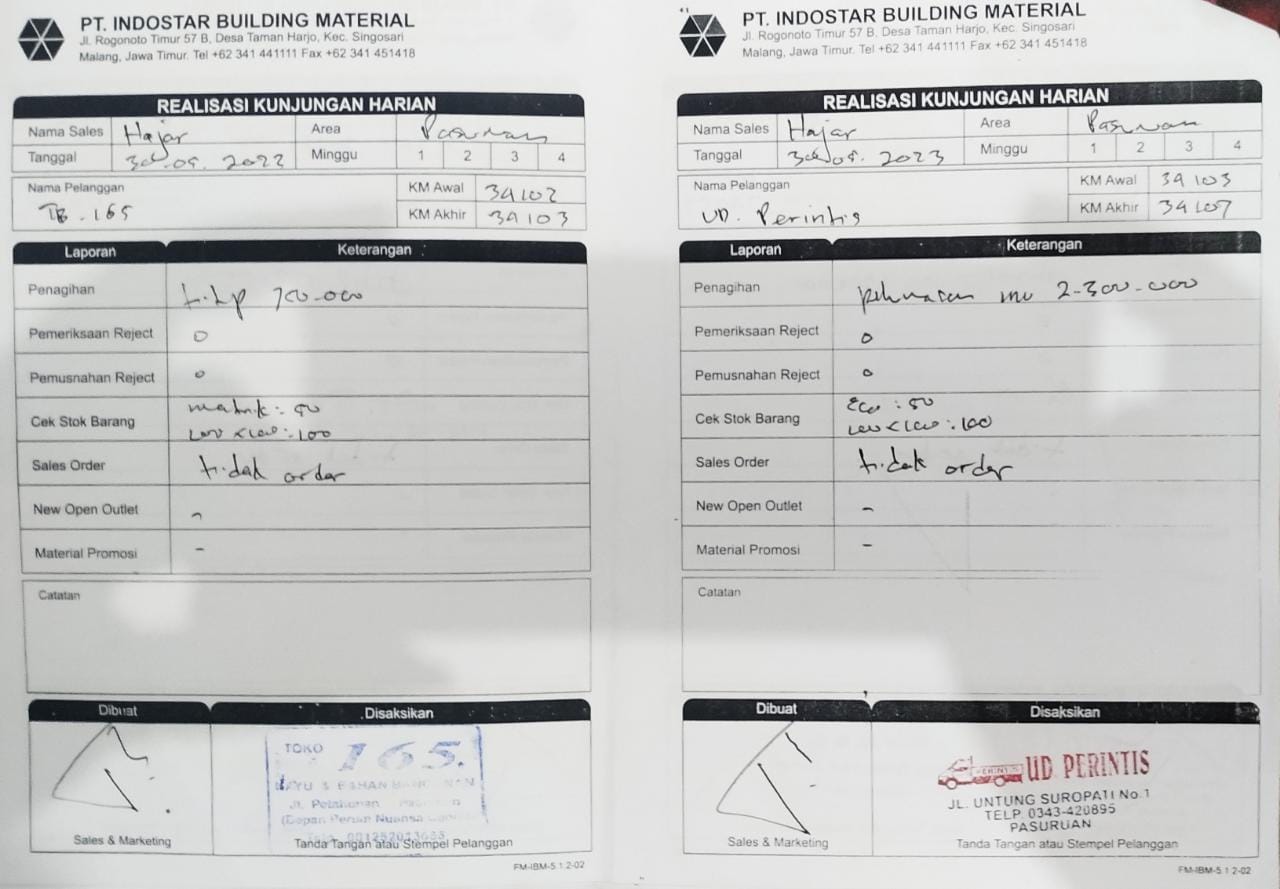 PT. INDOSTAR BUILDING MATERIAL
Jl. Rogonoto Timur 57 B, Desa Taman Harjo, Kec. Singosari
Malang, Jawa Timur. Tel +62 341 441111 Fax +62 341 451418
REALISASI KUNJUNGAN HARIAN
Nama Sales Hajar Area Pasuruan
Tanggal 2023 Minggu 1 2 3 4
Nama Pelanggan KM Awal 39102
TB. 165 KM Akhir 39103
Laporan Keterangan
Penagihan titip 700.000
Pemeriksaan Reject 0
Pemusnahan Reject 0
Cek Stok Barang : 50
: 100
Sales Order tidak order
New Open Outlet -
Material Promosi -
Catatan
Dibuat Disaksikan
TOKO 165.
KAYU & BAHAN BANGUNAN
Jl.
(Depan Perum Nuansa
Sales & Marketing Tanda Tangan atau Stempel Pelanggan
FM-IBM-5.1.2-02
PT. INDOSTAR BUILDING MATERIAL
Jl. Rogonoto Timur 57 B, Desa Taman Harjo, Kec. Singosari
Malang, Jawa Timur. Tel +62 341 441111 Fax +62 341 451418
REALISASI KUNJUNGAN HARIAN
Nama Sales Hajar Area Pasuruan
Tanggal 2023 Minggu 1 2 3 4
Nama Pelanggan KM Awal 39103
UD. Perintis KM Akhir 39107
Laporan Keterangan
Penagihan pelunasan mu 2.300.000
Pemeriksaan Reject 0
Pemusnahan Reject 0
Cek Stok Barang Eco : 50
: 100
Sales Order tidak order
New Open Outlet -
Material Promosi -
Catatan
Dibuat Disaksikan
PERINTIS UD PERINTIS
JL. UNTUNG SUROPATI No.1
TELP. 0343-420895
PASURUAN
Sales & Marketing Tanda Tangan atau Stempel Pelanggan
FM-IBM-5.1.2-02